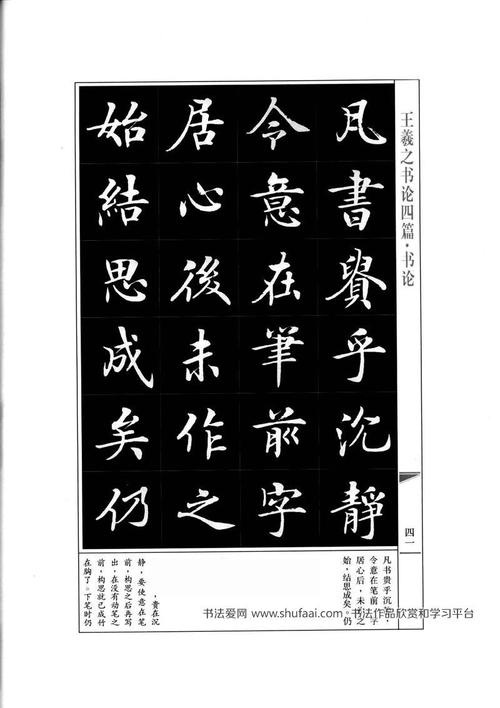 王羲之书论四篇·书论
四一
凡書貴乎沉靜
令意在筆前字
居心後未作之
始結思成矣仍
凡书贵乎沉
令意在笔前
居心后，未之
始，结思成矣。仍
，贵在沉
静，要使意在笔
前，构思之后再写
出，在没有动笔之
前，构思就已成竹
在胸了。下笔时仍
书法爱网 www.shufaai.com 书法作品欣赏和学习平台